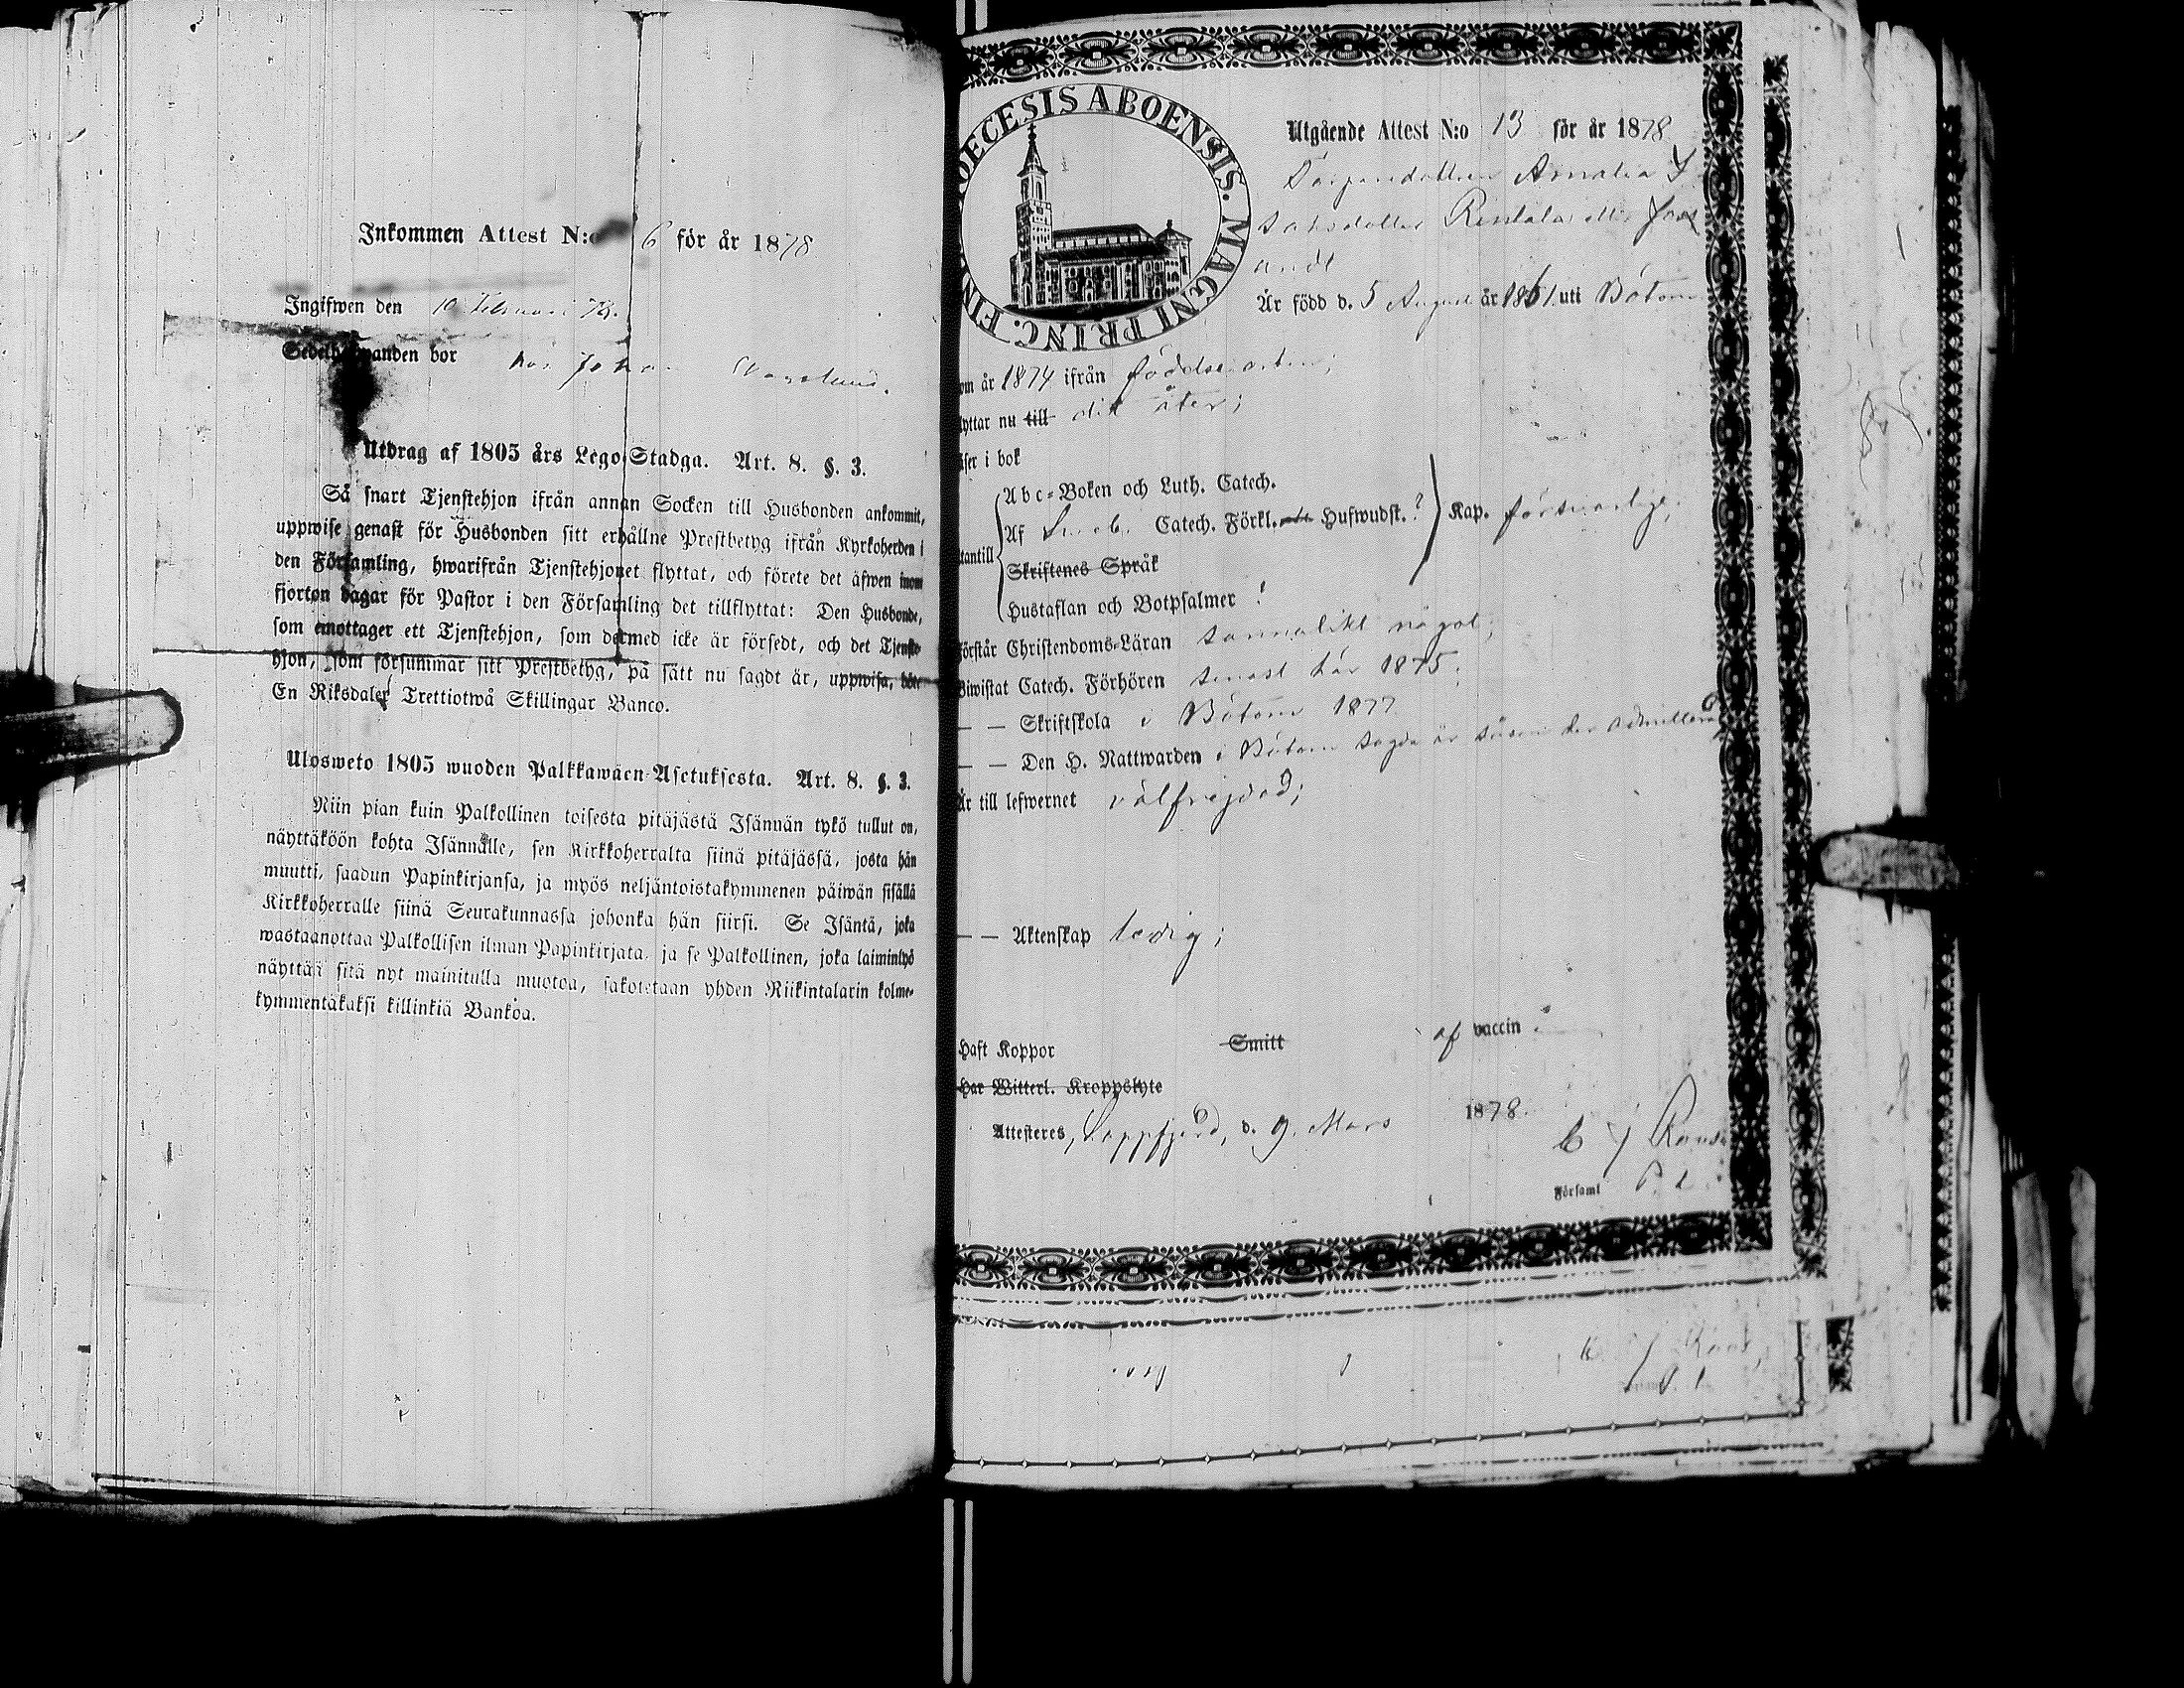 Inkommen Attest N:o 6 för år 1878
Ingifwen den 10 Februari 78.
Sedelhafwanden bor hos Johan
Utdrag af 1805 års Lego-Stadga. Art. 8. §. 3.
Så snart Tjenstehjon ifrån annan Socken till Husbonden ankommit,
uppwise genast för Husbonden sitt erhållne Prestbetyg ifrån Kyrkoherden i
den Församling, hwarifrån Tjenstehjonet flyttat, och förete det äfwen inom
fjorton dagar för Pastor i den Församling det tillflyttat: Den Husbonde,
som emottager ett Tjenstehjon, som dermed icke är försedt, och det Tjenste-
hjon, som försummar sitt Prestbetyg, på sätt nu sagdt är, uppwisa, böte
En Riksdaler Trettiotwå Skillingar Banco.
Ulosweto 1805 wuoden Palkkawäen-Asetuksesta. Art. 8. §. 3.
Niin pian kuin Palkollinen toisesta pitäjästä Isännän tykö tullut on,
näyttäköön kohta Isännälle, sen Kirkkoherralta siinä pitäjässä, josta hän
muutti, saadun Papinkirjansa, ja myös neljäntoistakymmenen päiwän sisällä
Kirkkoherralle siinä Seurakunnassa johonka hän siirsi. Se Isäntä, joka
wastaanottaa Palkollisen ilman Papinkirjata, ja se Palkollinen, joka laiminlyö
näyttää sitä nyt mainitulla muotoa, sakotetaan yhden Riikintalarin kolme-
kymmentäkaksi killinkiä Bankoa.
OECESIS ABOENSIS. MAGNI PRINC. FIN
Utgående Attest N:o 13 för år 1878
Amalia I
saksdotter Rentola eller
Är född d. 5 Augusti år 1861 uti Bötom
om år 1874 ifrån födelseorten;
lyttar nu till dit åter;
äser i bok
Abc-Boken och Luth. Catech.
Af Catech. Förkl. Hufwudst.? Kap. försvarligt;
tantill
Skriftenes Språk
Hustaflan och Botpsalmer ?
Förstår Christendoms-Läran sannolikt något;
Biwistat Catech. Förhören senast här 1875;
— — Skriftskola i Bötom 1877
— — Den H. Nattwarden i Bötom sagde år såsom der admitterad
Är till lefwernet välfrejdad;
— — Äktenskap ledig;
Haft Koppor Smitt af vaccin
Har Witterl. Kroppslyte
Attesteres, Lappfjerd, d. 9. Mars 1878.
C J Roos
Församl